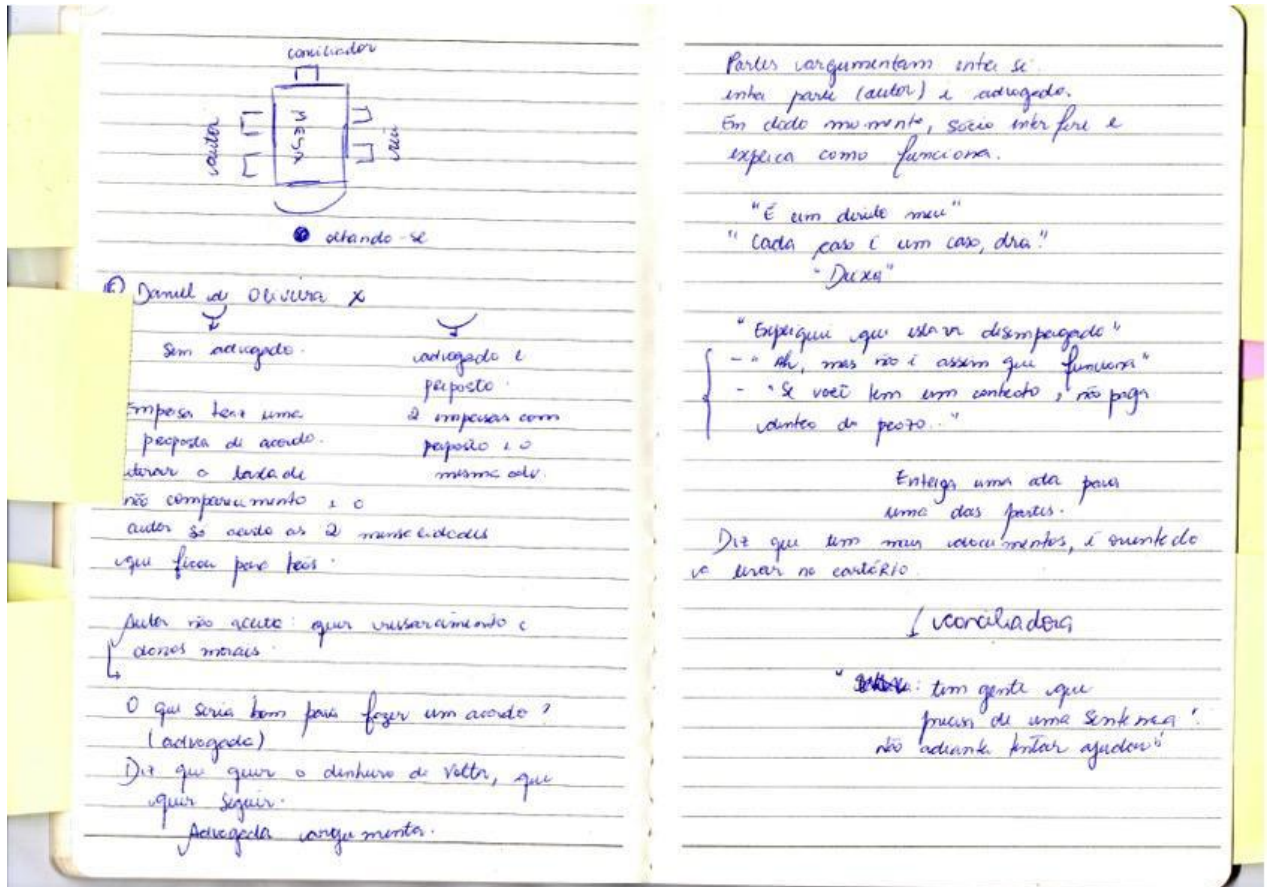 conciliador
autor
MESA
réu
olhando-se
Daniel de Oliveira X
Sem advogado.
advogado e
preposto.
Empresa traz uma
proposta de acordo.
2 empresas com
preposto e o
mesmo adv.
retirar a taxa de
não comparecimento e o
autor só acerta as 2 mensalidades
que ficou para trás.
Autor não aceita: quer ressarcimento e
danos morais.
O que seria bom para fazer um acordo?
(advogada)
Diz que quer o dinheiro de volta, que
quer seguir.
Advogada argumenta.
Partes argumentam entre si
entre parte (autor) e advogado.
Em dado momento, sócio interfere e
explica como funciona.
"É um direito meu"
"Cada caso é um caso, dra."
"Deixa"
"Expliquei que estava desempregado"
- "Ah, mas não é assim que funciona"
- "Se você tem um contrato, não paga
dentro do prazo.."
Entrega uma ata para
uma das partes.
Diz que tem mais documentos, é orientado
a levar no cartório.
conciliadora
tem gente que
precisa de uma sentença.
não adianta tentar ajudar"